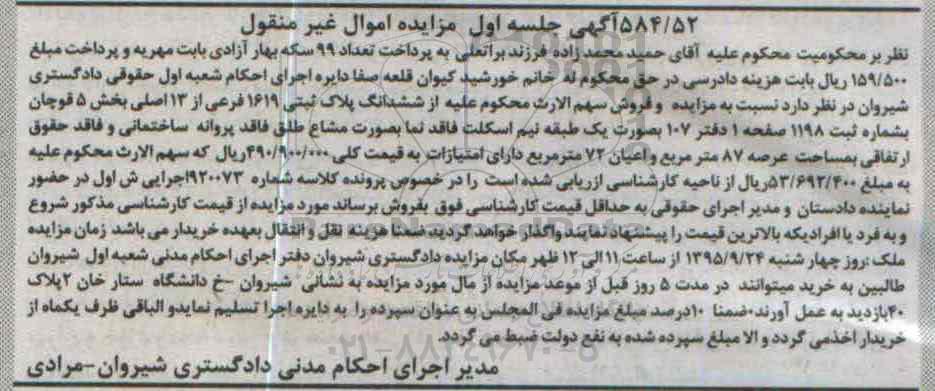 ۵۸۴/۵۲آگهی جلسه اول مزایده اموال غیر منقول
نظر بر محکومیت محکوم علیه آقای حمید محمد زاده فرزند براتعلی به پرداخت تعداد ۹۹ سکه بهار آزادی بابت مهریه و پرداخت مبلغ
۱۵۹/۵۰۰ ریال بابت هزینه دادرسی در حق محکوم له خانم خورشید کیوان قلعه صفا دایره اجرای احکام شعبه اول حقوقی دادگستری
شیروان در نظر دارد نسبت به مزایده و فروش سهم الارث محکوم علیه از ششدانگ پلاک ثبتی ۱۶۱۹ فرعی از ۱۳ اصلی بخش ۵ قوچان
بشماره ثبت ۱۱۹۸ صفحه ۱ دفتر ۱۰۷ بصورت یک طبقه نیم اسکلت فاقد نما بصورت مشاع طلق فاقد پروانه ساختمانی و فاقد حقوق
ارتفاقی بمساحت عرصه ۸۷ متر مربع و اعیان ۷۲ مترمربع دارای امتیازات به قیمت کلی ۴۹۰/۹۰۰/۰۰۰ریال که سهم الارث محکوم علیه
به مبلغ ۵۳/۶۹۲/۴۰۰ریال از ناحیه کارشناسی ارزیابی شده است را در خصوص پرونده کلاسه شماره ۹۲۰۰۷۳اجرایی ش اول در حضور
نماینده دادستان و مدیر اجرای حقوقی به حداقل قیمت کارشناسی فوق بفروش برساند مورد مزایده از قیمت کارشناسی مذکور شروع
و به فرد یا افرادیکه بالاترین قیمت را پیشنهاد نمایند واگذار خواهد گردید ضمنا هزینه نقل و انتقال بعهده خریدار می باشد زمان مزایده
ملک :روز چهار شنبه ۱۳۹۵/۹/۲۴ از ساعت ۱۱الی ۱۲ ظهر مکان مزایده دادگستری شیروان دفتر اجرای احکام مدنی شعبه اول شیروان
طالبین به خرید میتوانند در مدت ۵ روز قبل از موعد مزایده از مال مورد مزایده به نشانی شیروان –خ دانشگاه ستار خان ۲پلاک
۴۰بازدید به عمل آورند.ضمنا ۱۰درصد مبلغ مزایده فی المجلس به عنوان سپرده را به دایره اجرا تسلیم نمایدو الباقی ظرف یکماه از
خریدار اخذمی گردد و الا مبلغ سپرده شده به نفع دولت ضبط می گردد.
مدیر اجرای احکام مدنی دادگستری شیروان-مرادی